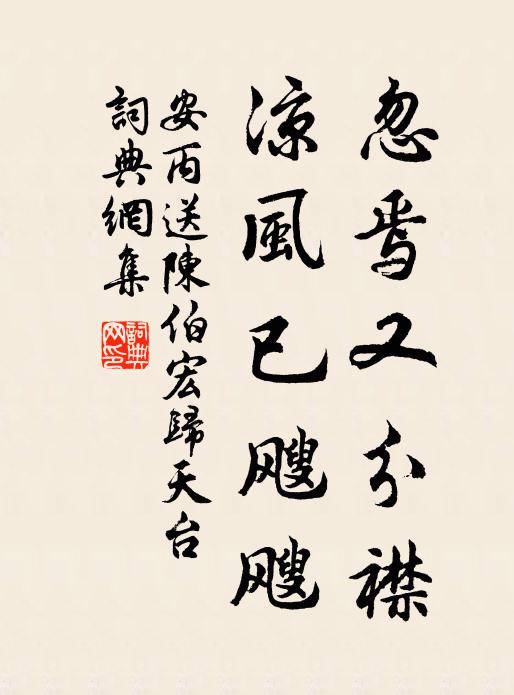 忽焉又分襟
涼風已颼颼
安丙送陳伯宏歸天台
詞典網集
詞典網印